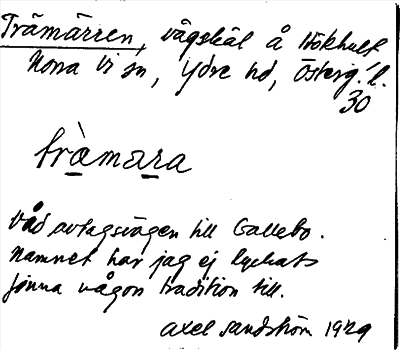 Trämärren, vägskäl å Stökhult
Norra Vi sn, Ydre hd, Österg. l.
30
trä̀mara
Vid avtagsvägen till Gallebo.
Namnet har jag ej lyckats
finna någon tradition till.
Axel Sandström 1929